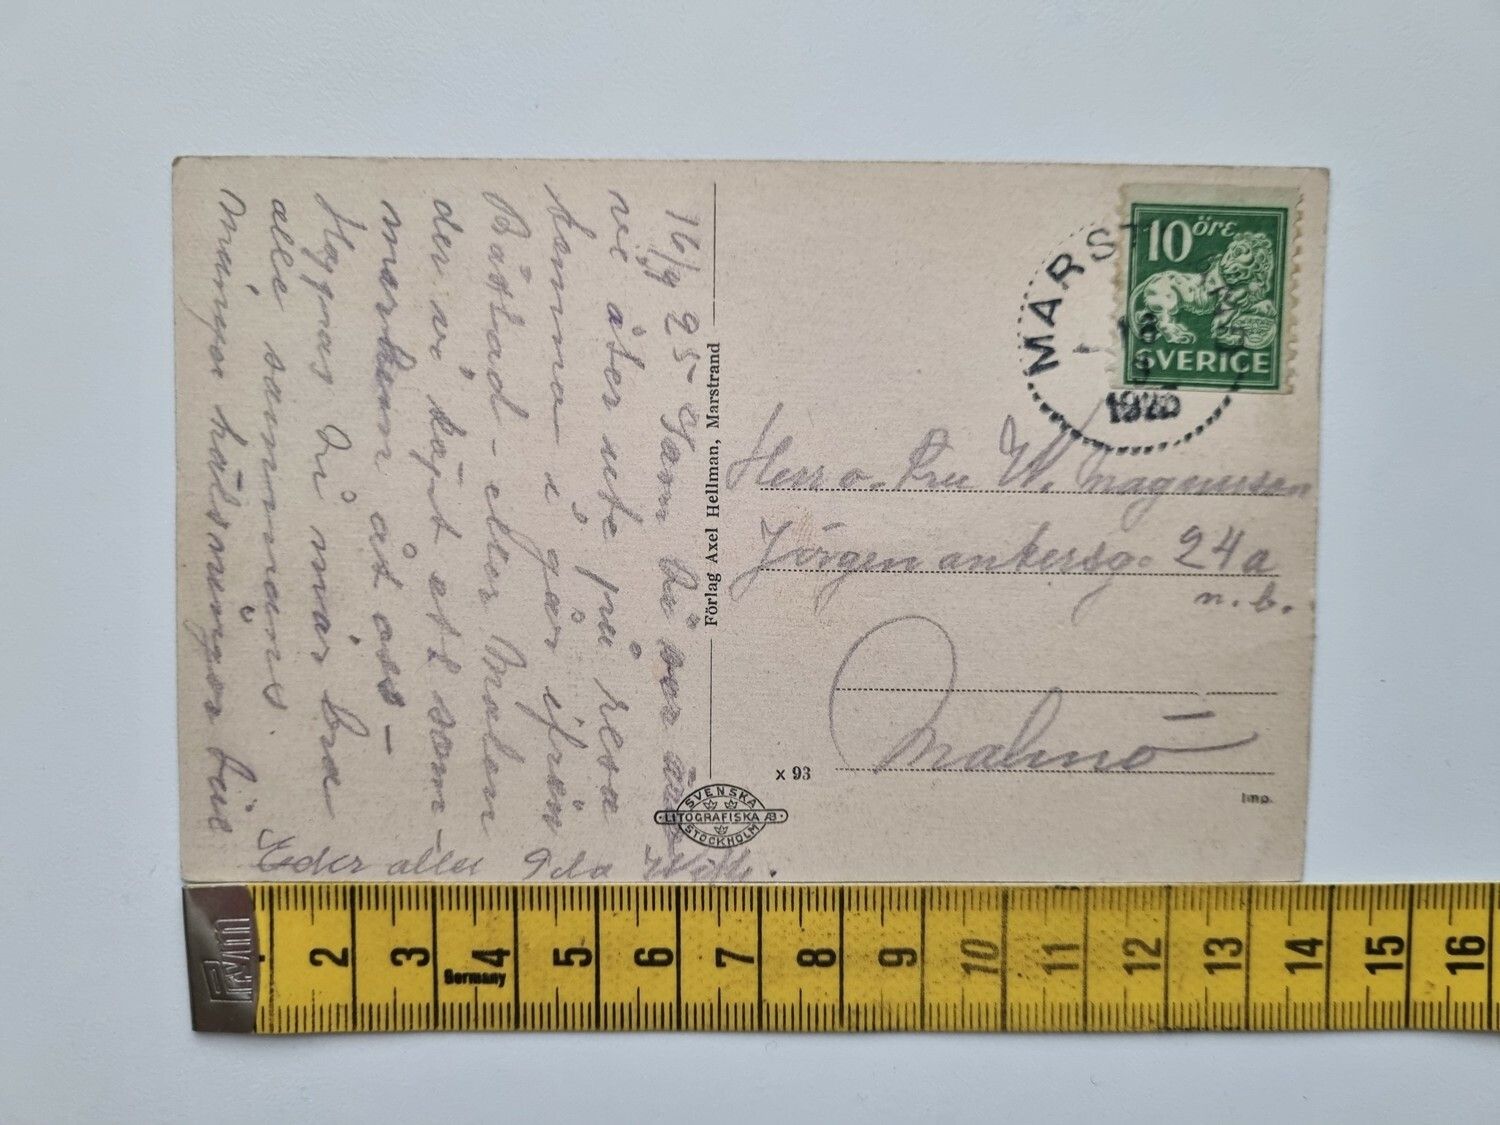 16/9 25 Som Du ser är
vi åter ute på resa
komna i går ifrån
Båstad - eller Malen
der vi köpt ett som-
marhem åt oss -
Hoppas Ni mår bra
alle sammans.
Många hälsningar till
Eder alla
Förlag Axel Hellman, Marstrand
SVENSKA
LITOGRAFISKA AB
STOCKHOLM
x 93
10 öre
SVERIGE
MARSTRAND
1925
Herr o. Fru W. Magnusson
Jörgen ankersg. 24a
n. b.
Malmö
Imp.
PWM
Germany
2 3 4 5 6 7 8 9 10 11 12 13 14 15 16